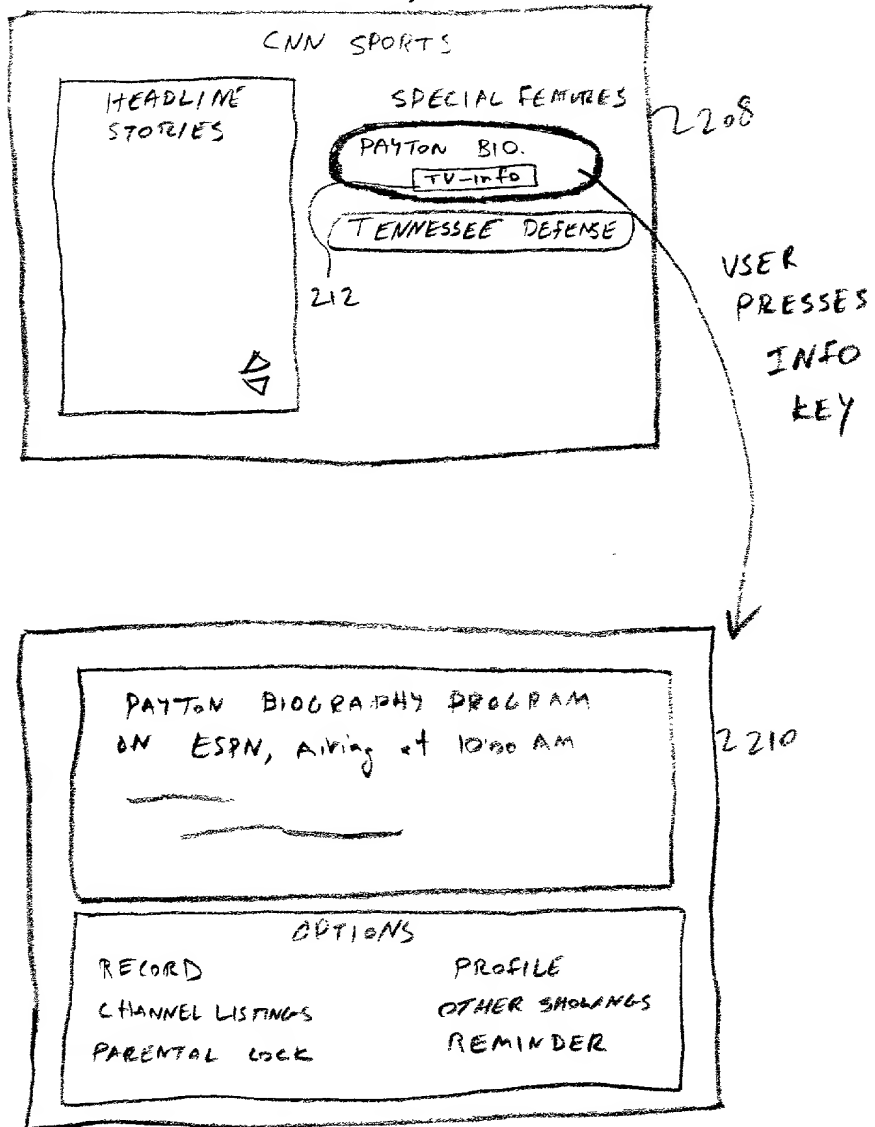 CNN SPORTS
HEADLINE
STORIES
SPECIAL FEATURES
2208
PAYTON BIO.
TV-info
TENNESSEE DEFENSE
212
USER
PRESSES
INFO
KEY
PAYTON BIOGRAPHY PROGRAM
ON ESPN, Airing at 10:00 AM
2210
OPTIONS
RECORD PROFILE
CHANNEL LISTINGS OTHER SHOWINGS
PARENTAL LOCK REMINDER